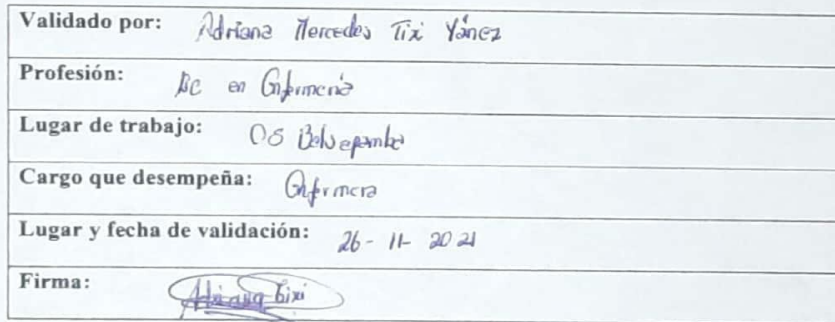 Validado por: Adriana Mercedes Tixi Yánez
Profesión: en Enfermería
Lugar de trabajo: CS
Cargo que desempeña: Enfermera
Lugar y fecha de validación: 26-11-2021
Firma: Adriana Tixi